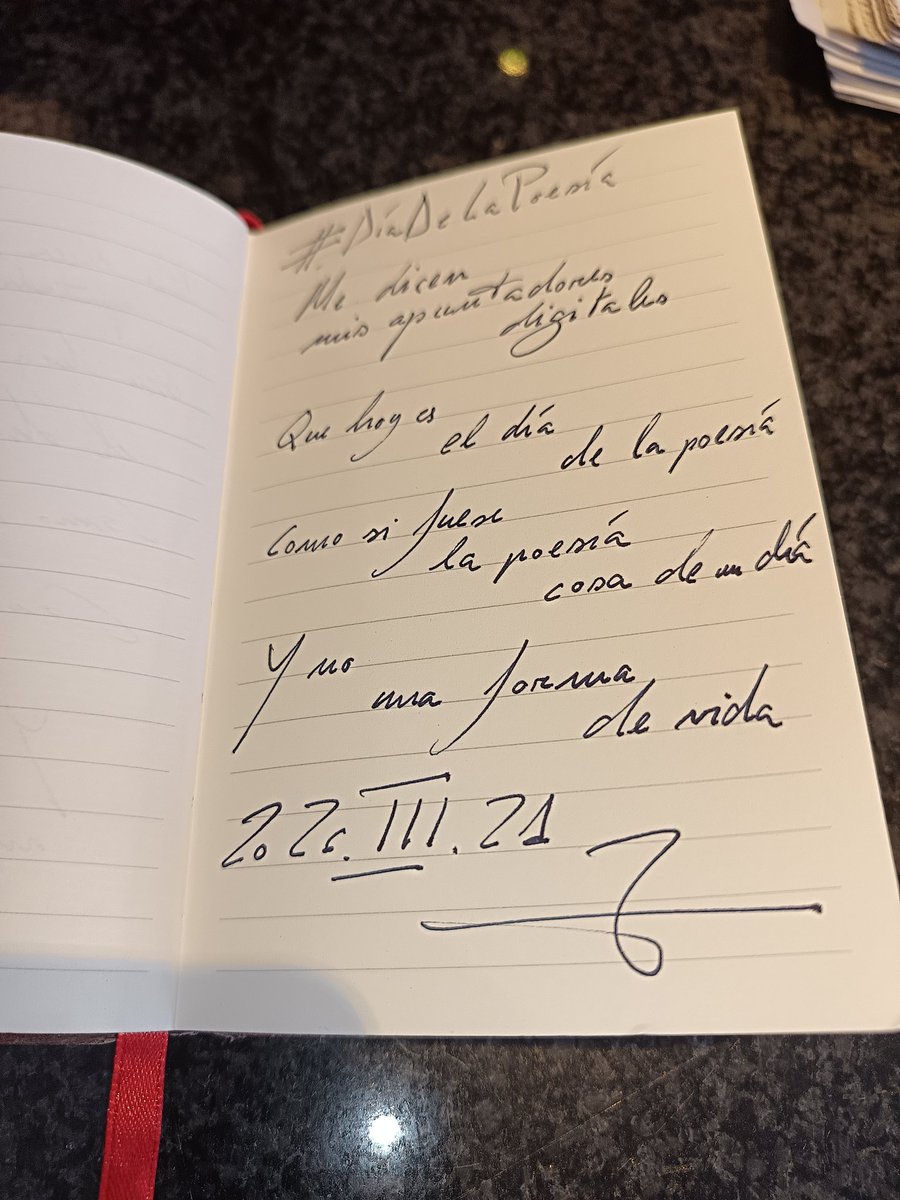 #DíaDeLaPoesía
Me dicen
mis apuntadores
digitales
Que hoy es
el día
de la poesía
Como si fuese
la poesía
cosa de un día
Y no
una forma
de vida
2026.III.21